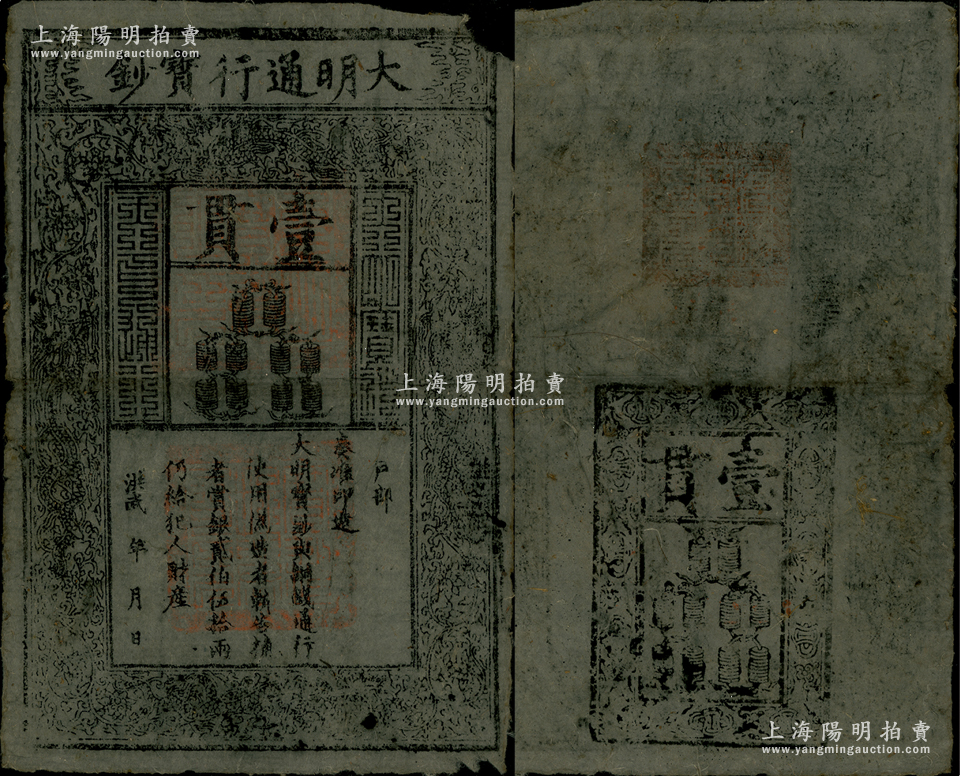 上海陽明拍賣
www.yangmingauction.com
大明通行寶鈔
壹貫
戶部
奏准印造
大明寶鈔與銅錢通行
使用偽造者斬告捕
者賞銀貳伯伍拾兩
仍給犯人財産
洪武 年 月 日
上海陽明拍賣
www.yangmingauction.com
壹貫
上海陽明拍賣
www.yangmingauction.com